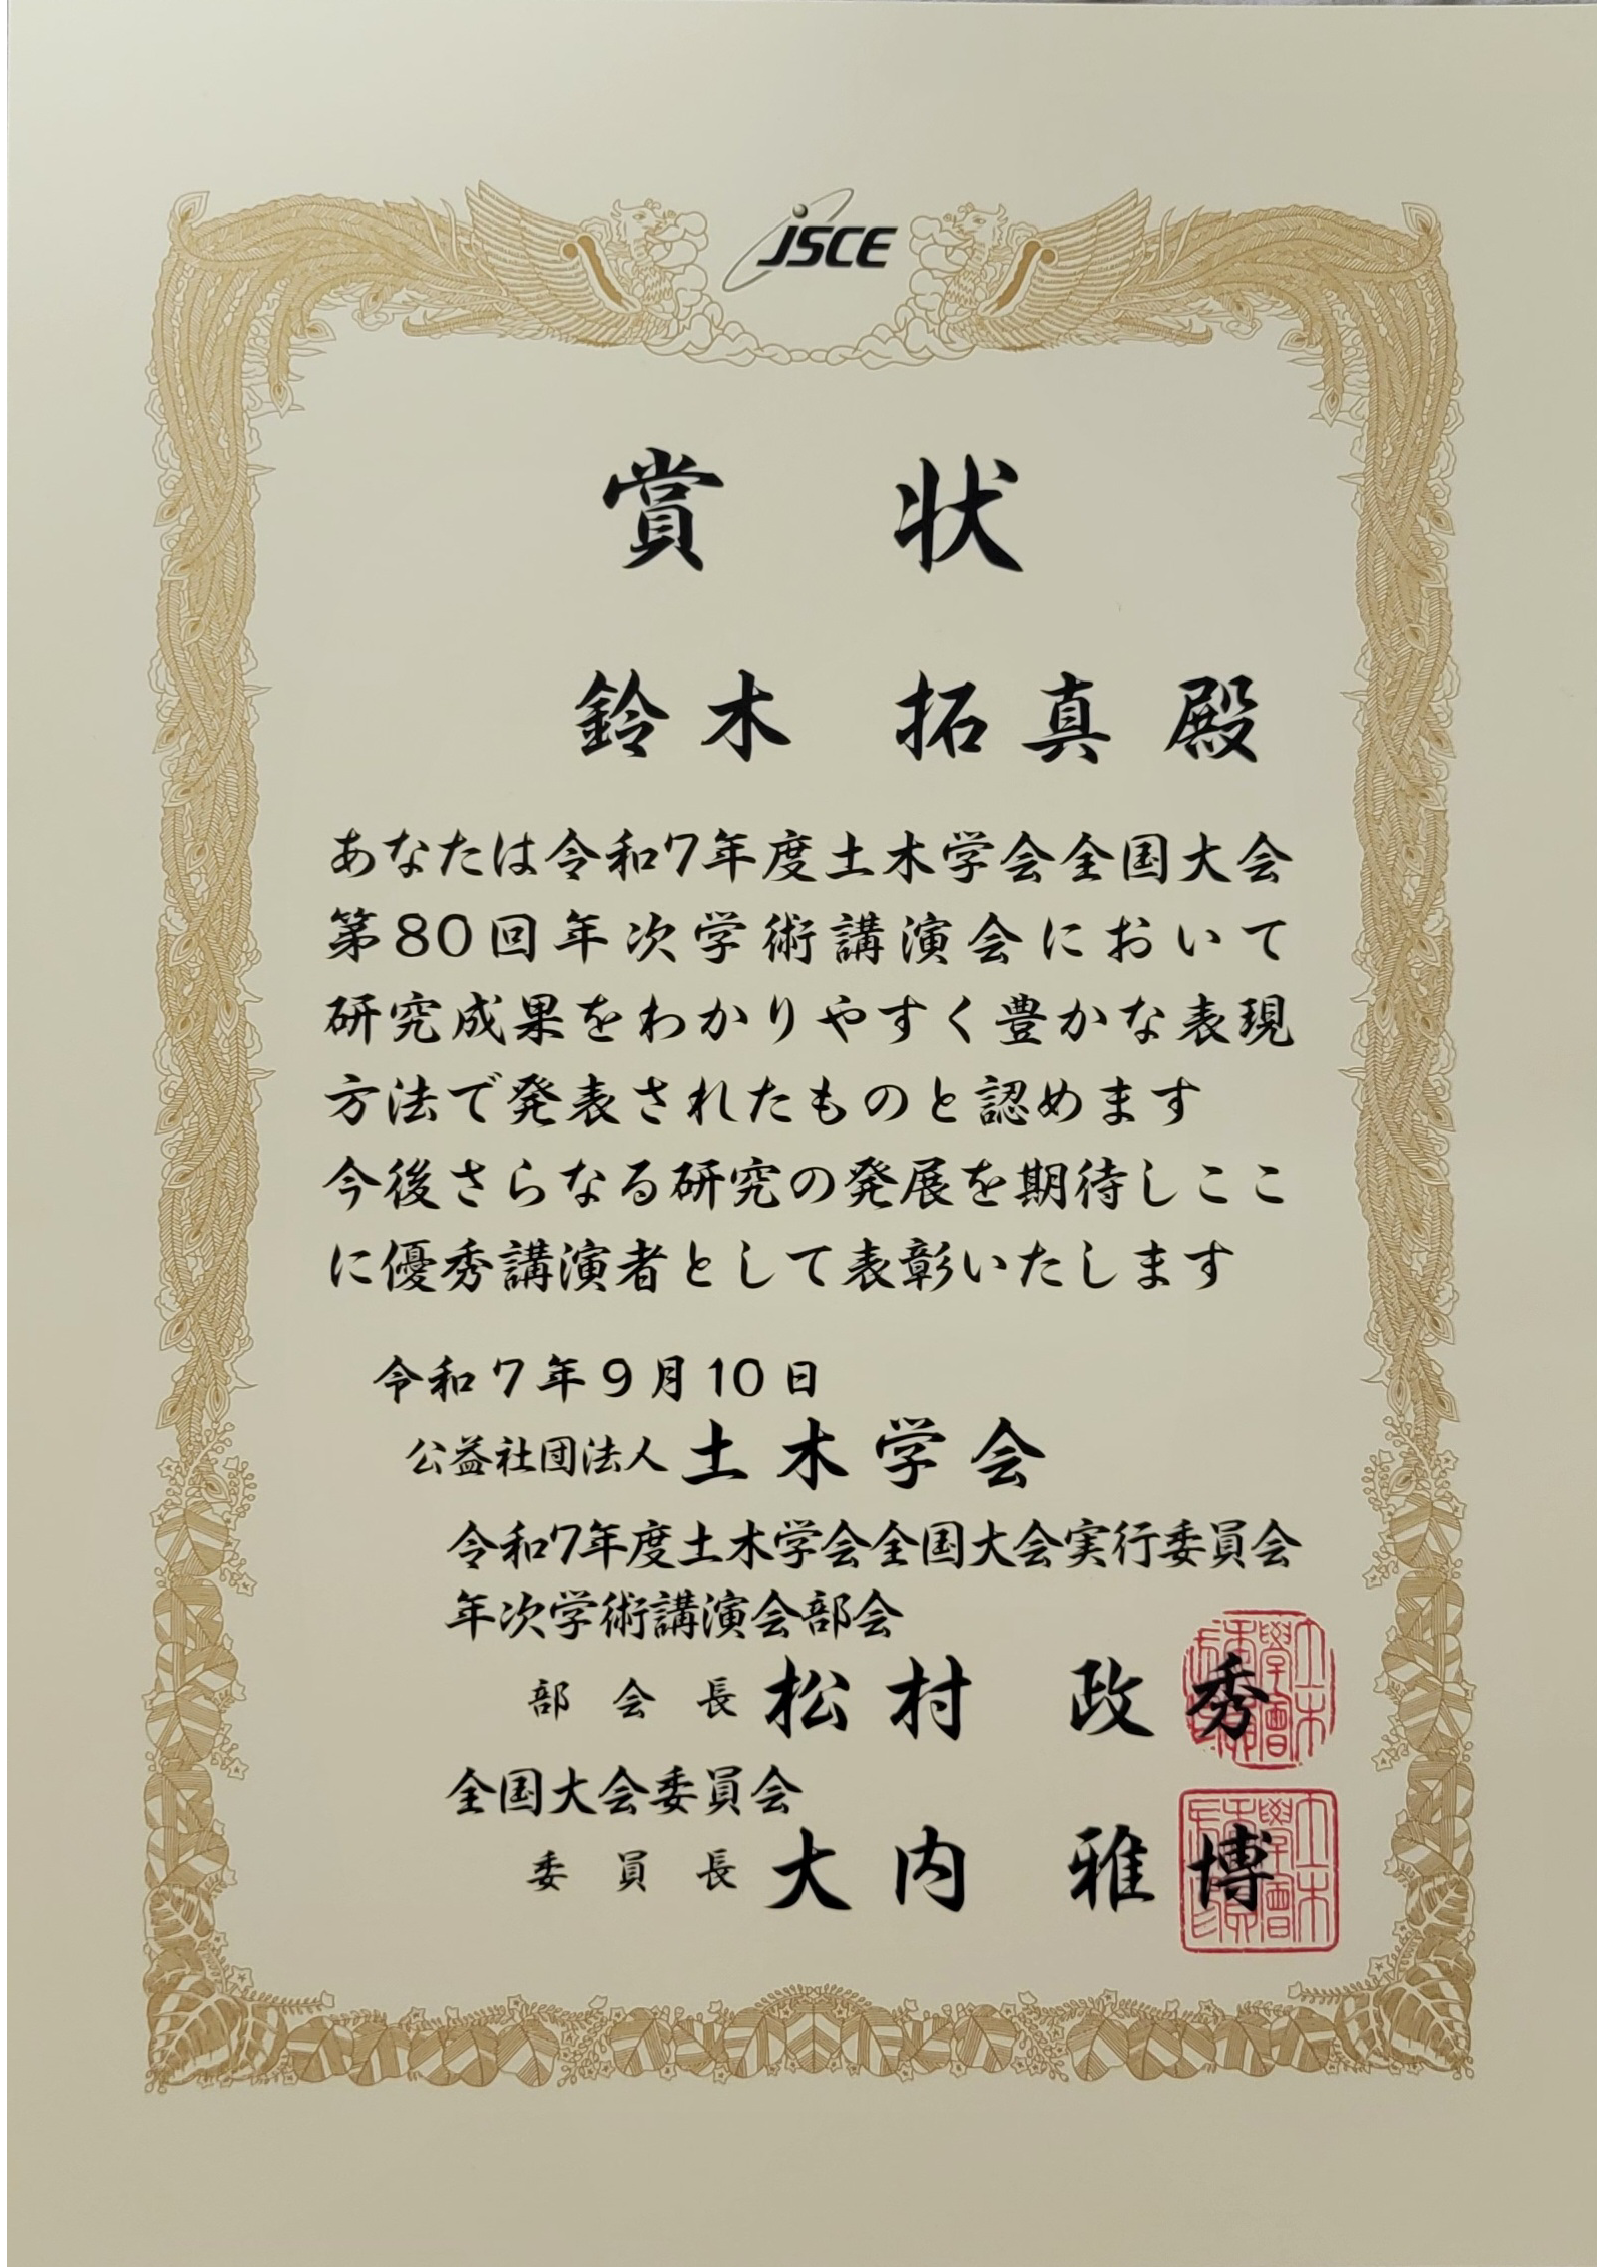 JSCE
賞状
鈴木 拓真 殿
あなたは令和7年度土木学会全国大会
第80回年次学術講演会において
研究成果をわかりやすく豊かな表現
方法で発表されたものと認めます
今後さらなる研究の発展を期待しここ
に優秀講演者として表彰いたします
令和7年9月10日
公益社団法人 土木学会
令和7年度土木学会全国大会実行委員会
年次学術講演会部会
部会長 松村 政秀
全国大会委員会
委員長 大内 雅博